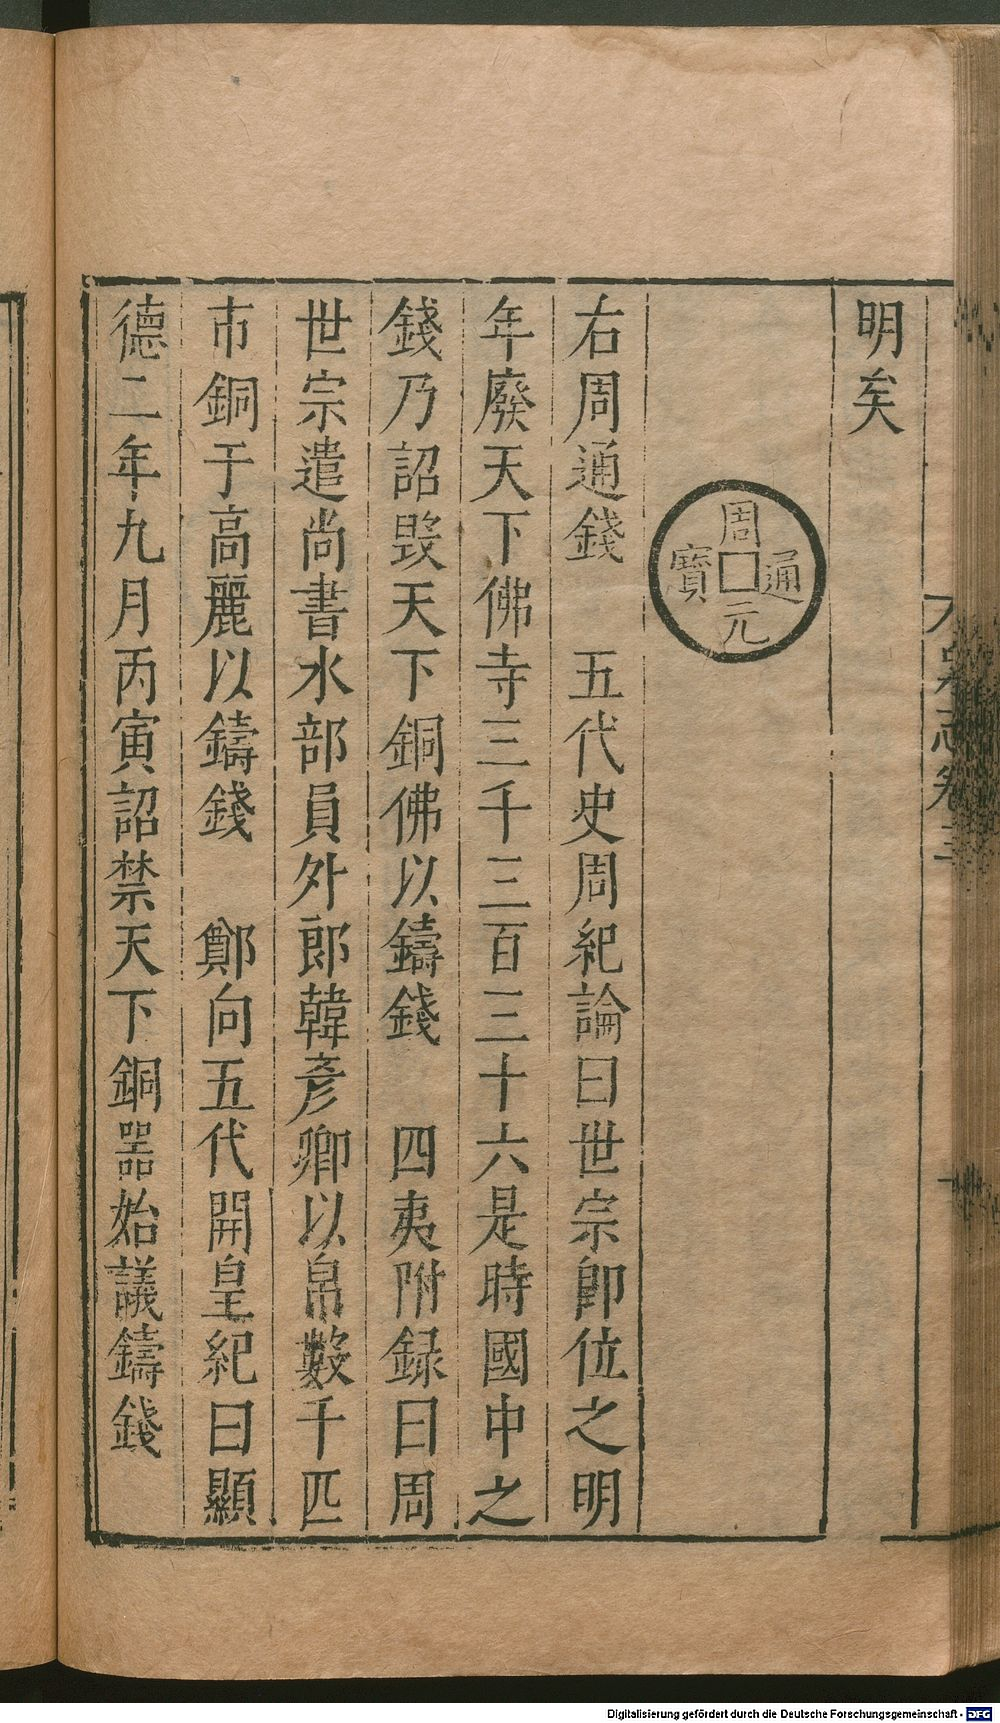 明矣
周元通寶
右周通錢　五代史周紀論曰世宗卽位之明
年廢天下佛寺三千三百三十六是時國中之
錢乃詔毀天下銅佛以鑄錢　四夷附録曰周
世宗遣尚書水部員外郎韓彥卿以帛數千匹
市銅于高麗以鑄錢　鄭向五代開皇紀曰顯
德二年九月丙寅詔禁天下銅器始議鑄錢
泉志卷三
Digitalisierung gefördert durch die Deutsche Forschungsgemeinschaft - DFG